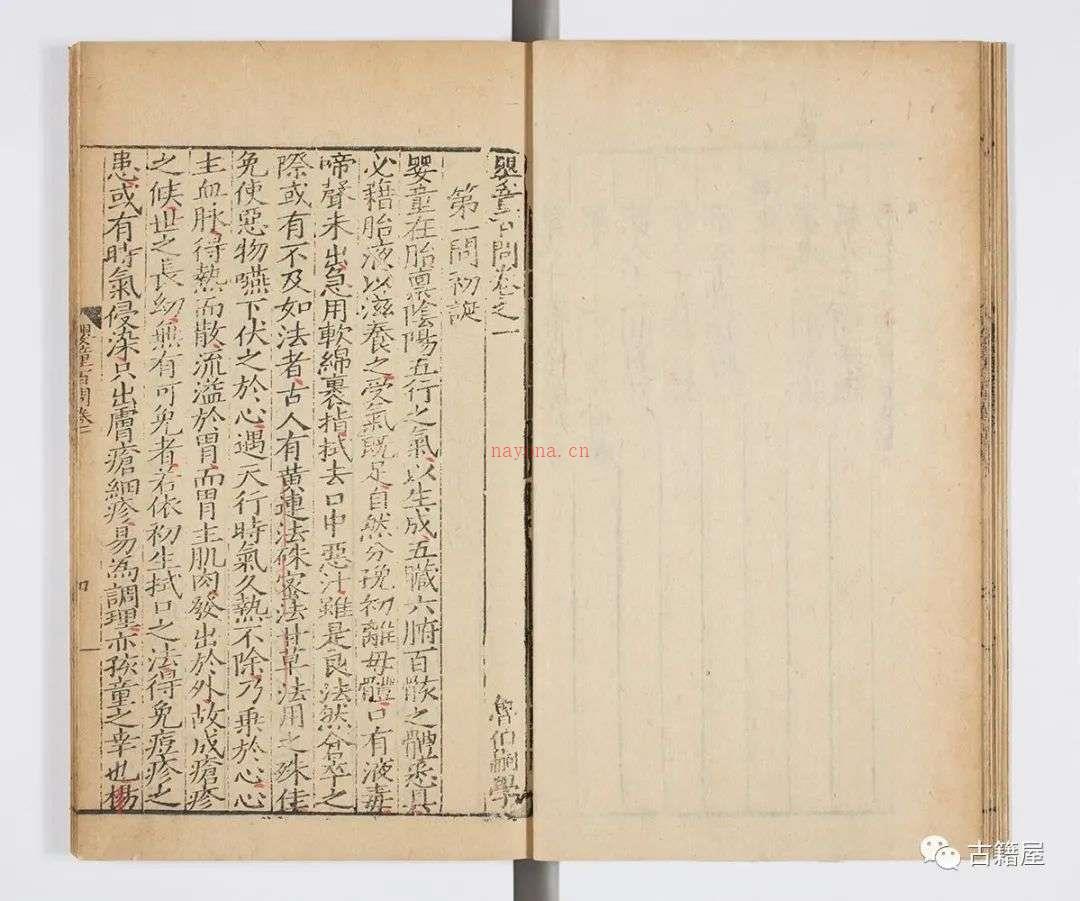 嬰童百問卷之一
魯伯嗣學
第一問初誕
嬰童在胎禀陰陽五行之氣以生成五臟六腑百骸之體悉具
必藉胎液以滋養之受氣既足自然分娩初離母體口有液毒
啼聲未出急用軟綿裹指拭去口中惡汁雖是良法然倉卒之
際或有不及如法者古人有黄連法硃宻法甘草法用之殊佳
免使惡物嚥下伏之於心遇天行時氣久熱不除乃乗於心心
主血脉得熱而散流溢於胃而胃主肌肉發出於外故成瘡疹
之候世之長幼無有可免者若依初生拭口之法得免痘疹之
患或有時氣侵染只出膚瘡細疹易為調理亦孩童之幸也楊
嬰童百問卷一
一
nayona.cn
古籍屋